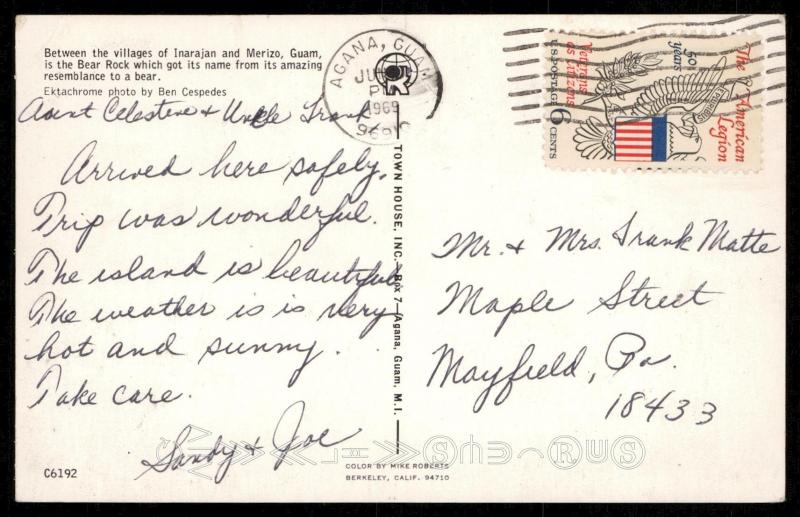 Between the villages of Inarajan and Merizo, Guam,
is the Bear Rock which got its name from its amazing
resemblance to a bear.
Ektachrome photo by Ben Cespedes
Aunt Celestene & Uncle Frank
Arrived here safely.
Trip was wonderful.
The island is beautiful
The weather is is very
hot and sunny.
Take care.
Sandy & Joe
C6192
AGANA, GUAM
PM
1969
TOWN HOUSE, INC.—Box 7—Agana, Guam, M.I.
COLOR BY MIKE ROBERTS
BERKELEY, CALIF. 94710
The American
Legion
50
years
Veterans
as citizens
U.S. POSTAGE 6 CENTS
Mr. & Mrs. Frank Matte
Maple Street
Mayfield, Pa.
18433